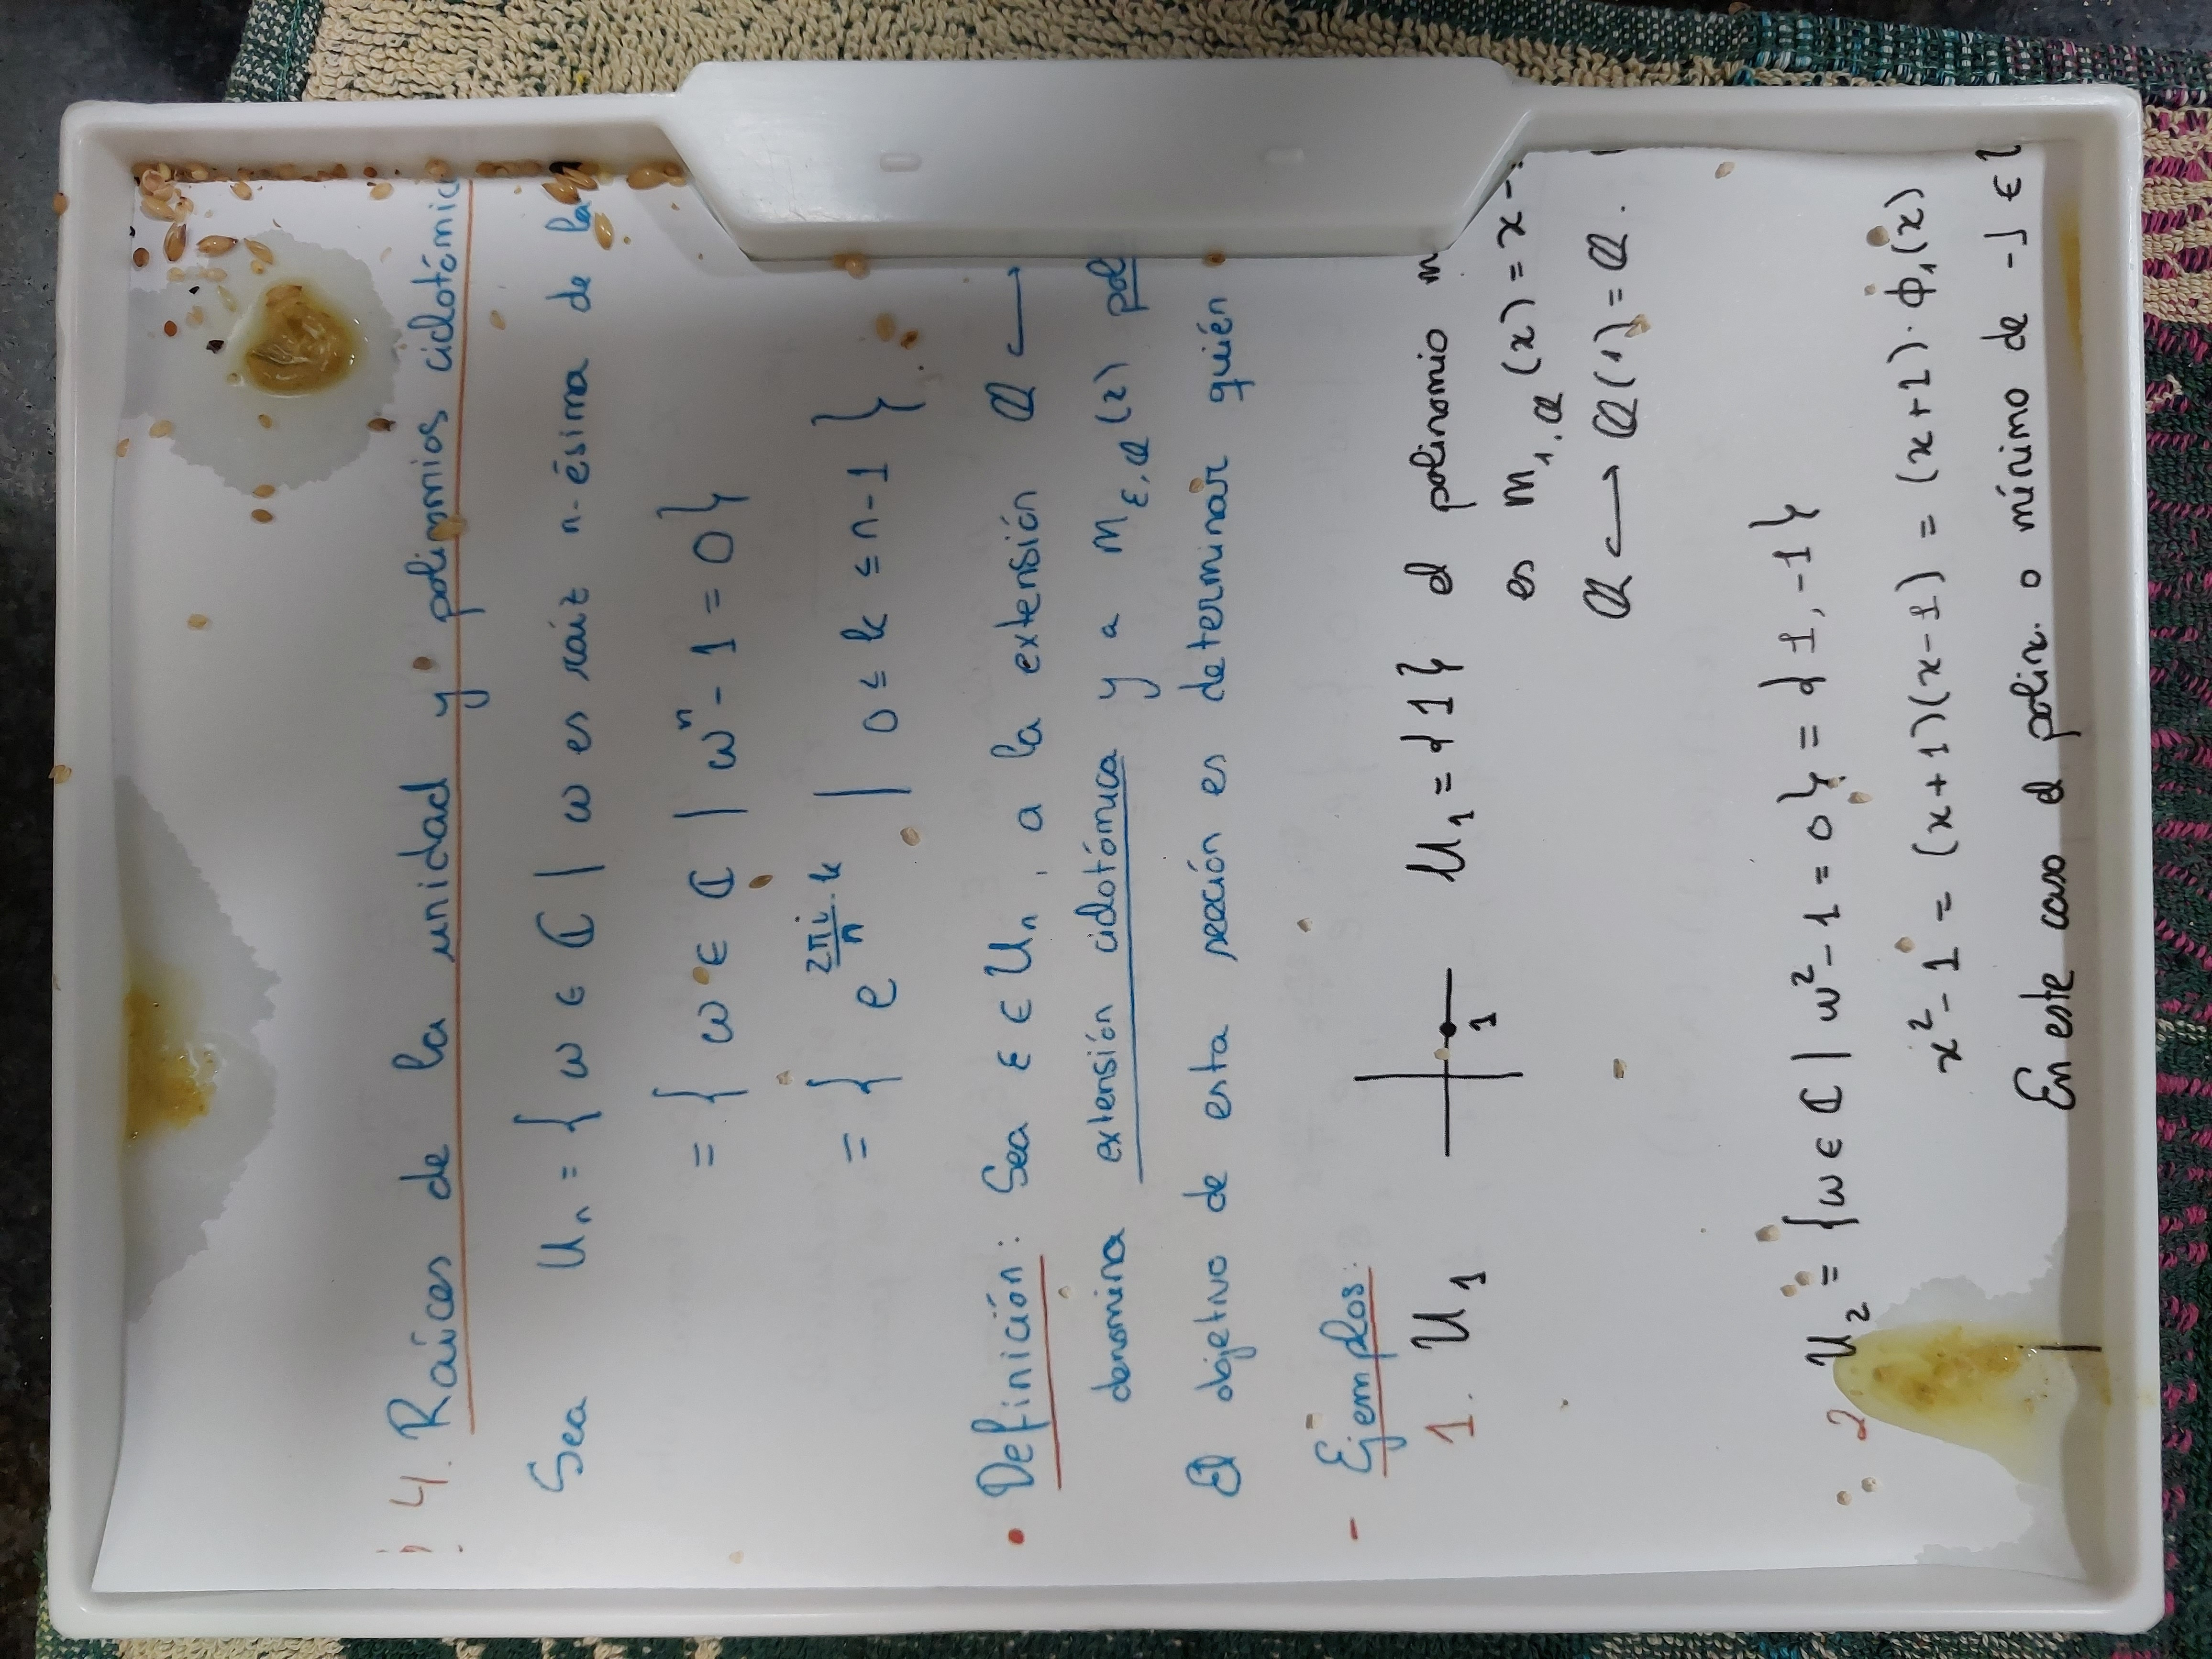 § 4. Raíces de la unidad y polinomios ciclotómic
Sea Uₙ = { ω ∈ ℂ | ω es raíz n-ésima de la
= { ω ∈ ℂ | ωⁿ - 1 = 0 }
= { e^{\frac{2πi}{n}·k} | 0 ≤ k ≤ n-1 }
• Definición: Sea ε ∈ Uₙ, a la extensión ℚ ↪
denomina extensión ciclotómica y a m_{ε,ℚ}(x) pol
El objetivo de esta sección es determinar quién
- Ejemplos:
1. U₁ 1 U₁ = {1} el polinomio m
es m_{1,ℚ}(x) = x-
ℚ ↪ ℚ(1) = ℚ.
2 U₂ = {ω ∈ ℂ | ω² - 1 = 0} = {1, -1}
x² - 1 = (x+1)(x-1) = (x+1)·ϕ₁(x)
En este caso el polin. o mínimo de -1 ∈